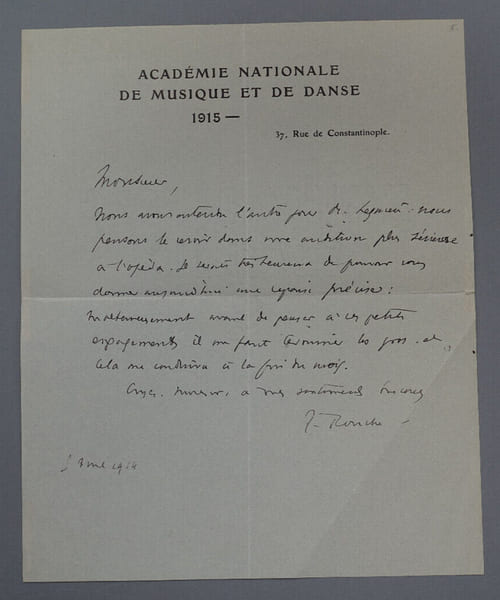 ACADÉMIE NATIONALE
DE MUSIQUE ET DE DANSE
1915 —
37, Rue de Constantinople.
Monsieur,
Nous avons entendu l'autre jour Mr. nous
pensons le revoir dans une audition plus sérieuse
à l'opéra. Je serais très heureux de pouvoir vous
donner aujourd'hui une réponse précise :
malheureusement avant de penser à ces petits
engagements il me faut terminer les gros. et
cela me conduira à la fin du mois.
Croyez, Monsieur, à mes sentiments
J. Rouché
1914